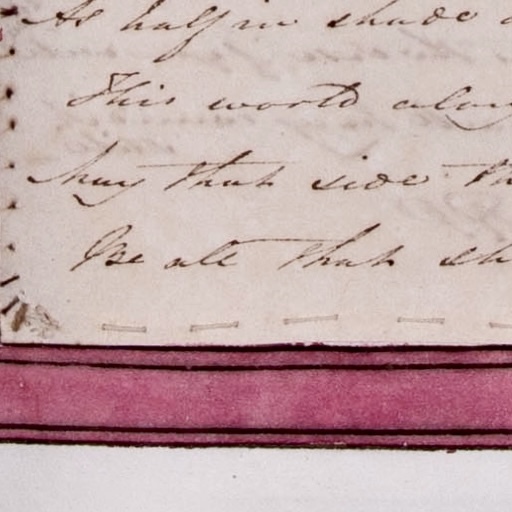 As half in shade
This world along
May that side th
Be all that sh